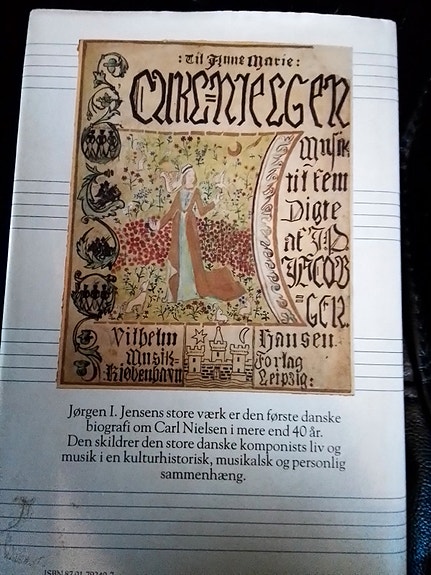 : Til Anne Marie :
CARL=NIELSEN
Musik
til fem
Digte
af J.P.
JACOB
=SEN.
Vilhelm
Musik-
Kjöbenhavn
Hansen
Forlag
Leipzig:
Jørgen I. Jensens store værk er den første danske
biografi om Carl Nielsen i mere end 40 år.
Den skildrer den store danske komponists liv og
musik i en kulturhistorisk, musikalsk og personlig
sammenhæng.